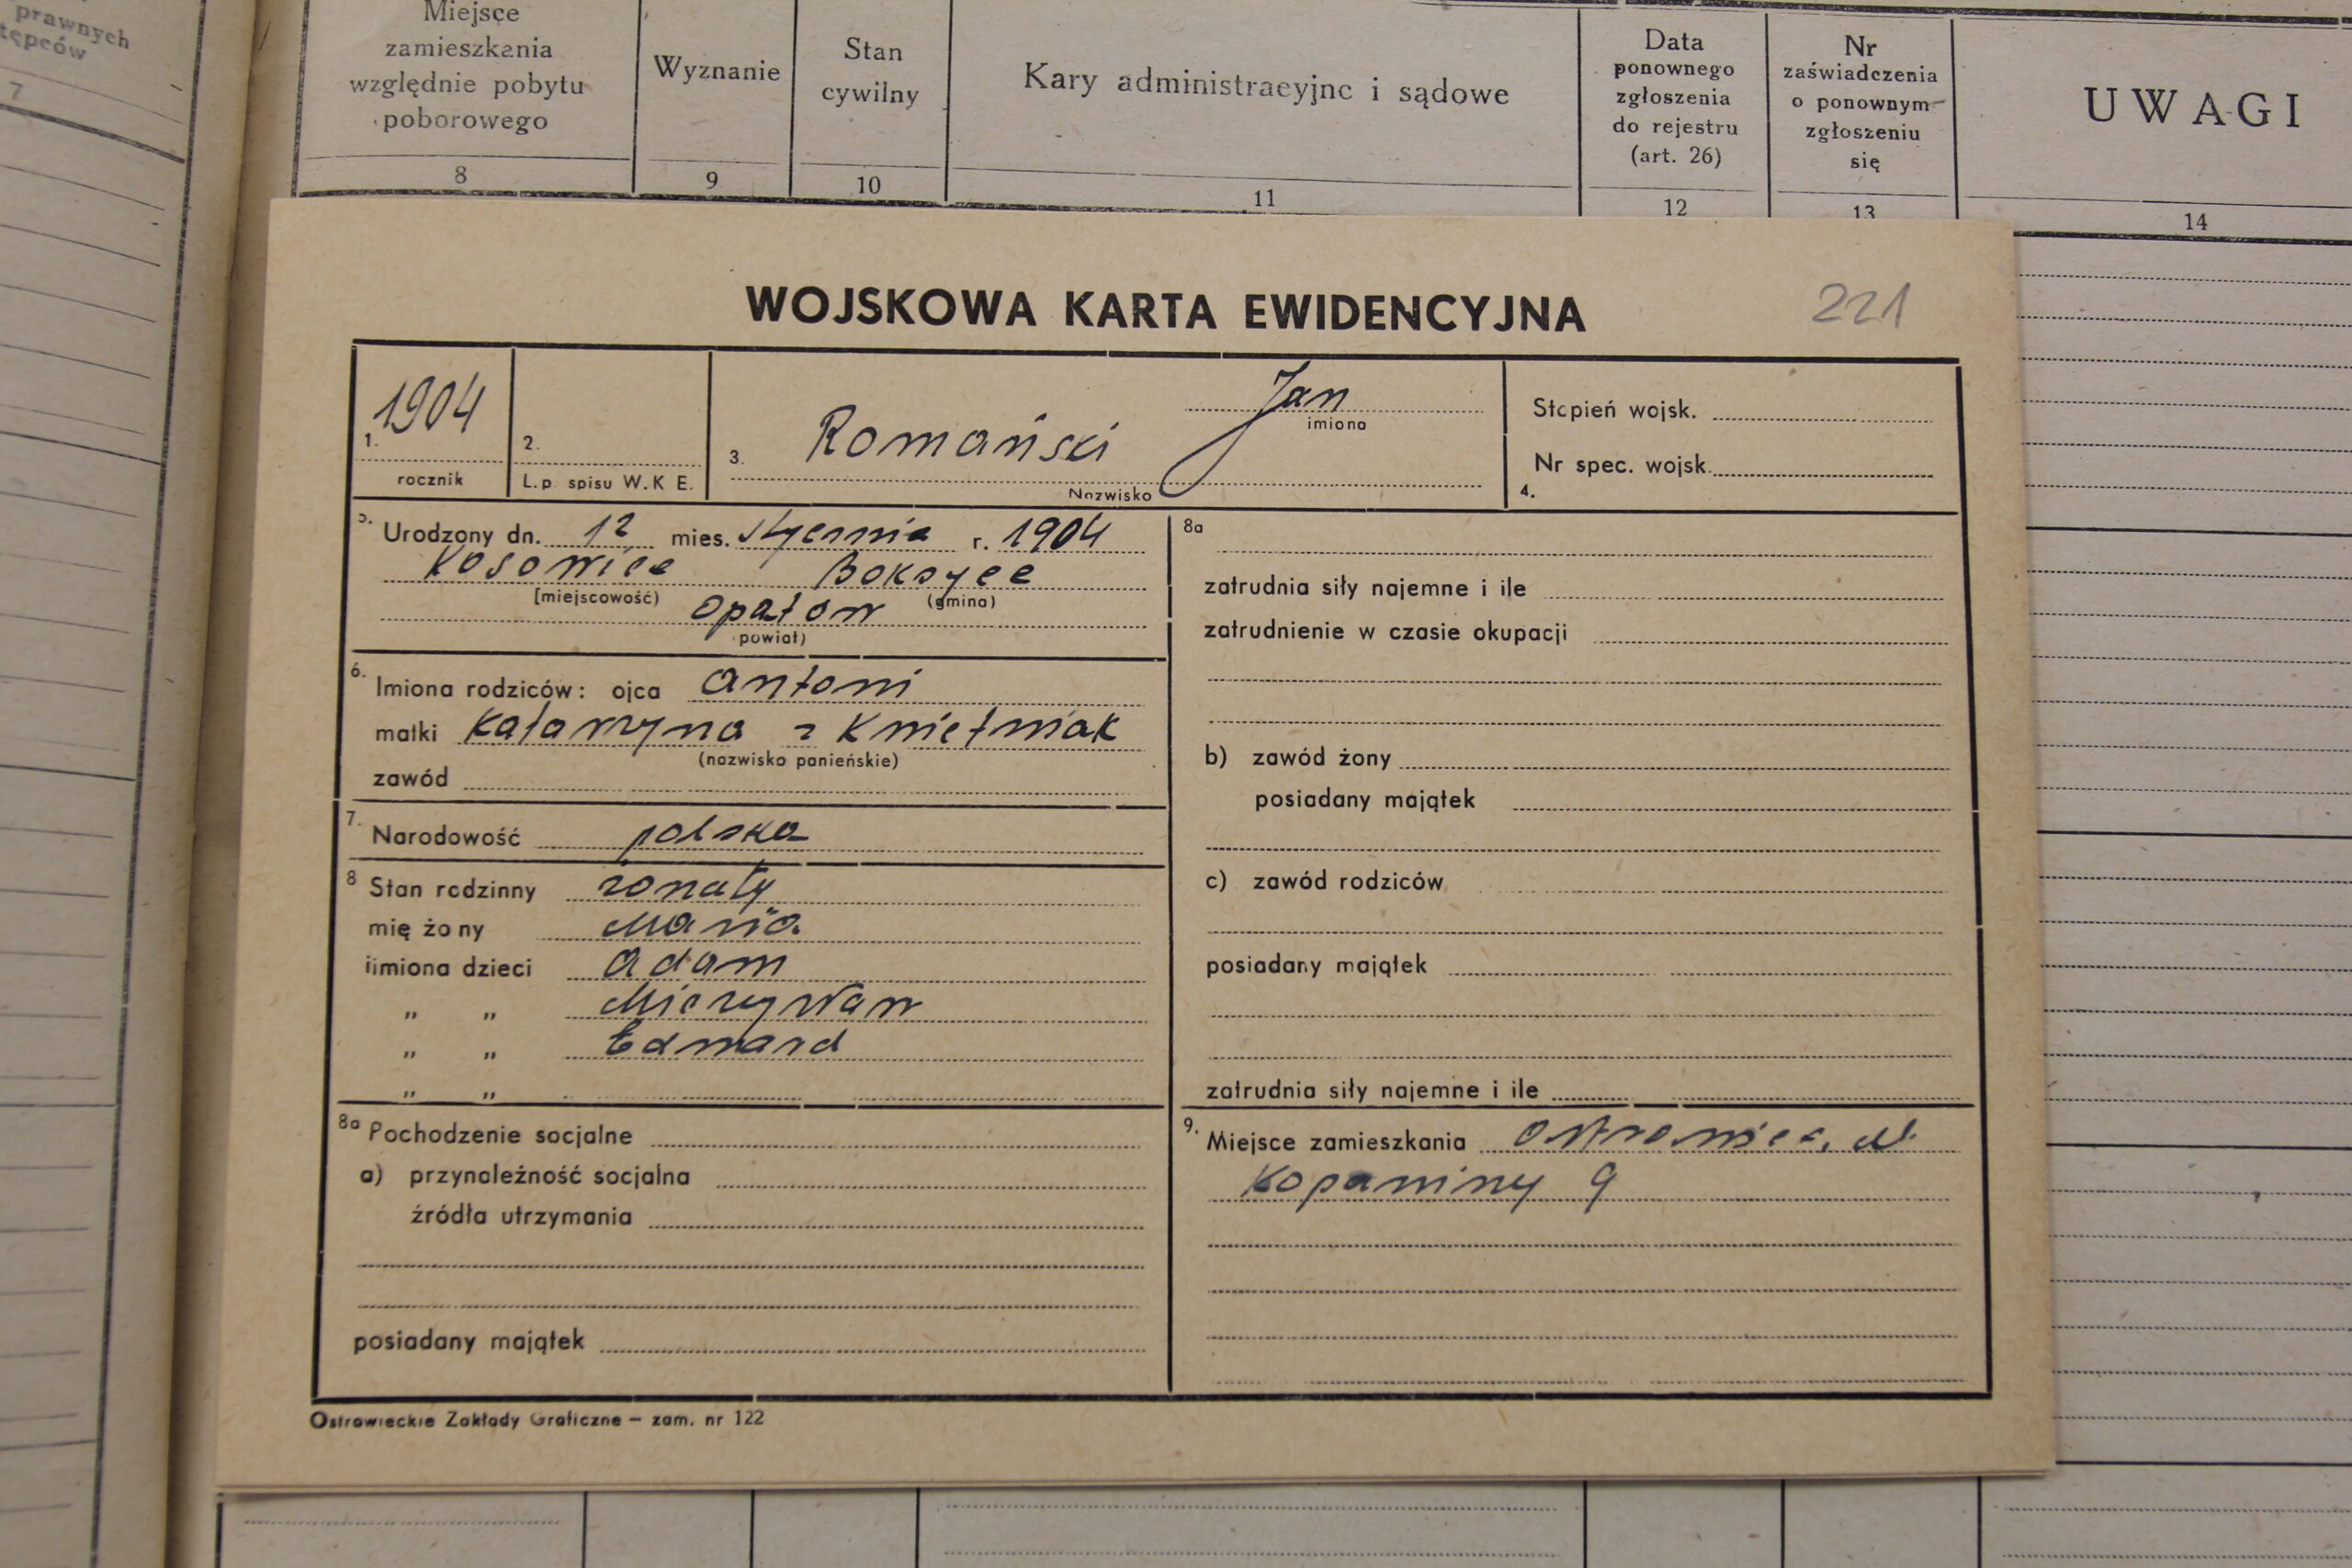 prawnych
tępców
7
Miejsce
zamieszkania
względnie pobytu
poborowego
8
Wyznanie
9
Stan
cywilny
10
Kary administracyjne i sądowe
11
Data
ponownego
zgłoszenia
do rejestru
(art. 26)
12
Nr
zaświadczenia
o ponownym
zgłoszeniu
się
13
UWAGI
14
WOJSKOWA KARTA EWIDENCYJNA 221
1. 1904
rocznik
2.
L.p. spisu W.K E.
3. Romański Jan
imiona
Nazwisko
Stopień wojsk.
Nr spec. wojsk.
4.
5. Urodzony dn. 12 mies. stycznia r. 1904
Kosowice Boksyce
[miejscowość) (gmina)
Opatów
powiat)
6. Imiona rodziców: ojca Antoni
matki Katarzyna z Kwietniak
(nazwisko panieńskie)
zawód
7. Narodowość polska
8 Stan rodzinny żonaty
mię żony Maria
iimiona dzieci Adam
" " Mieczysław
" " Edward
" "
8a Pochodzenie socjalne
a) przynależność socjalna
źródła utrzymania
posiadany majątek
8a
zatrudnia siły najemne i ile
zatrudnienie w czasie okupacji
b) zawód żony
posiadany majątek
c) zawód rodziców
posiadany majątek
zatrudnia siły najemne i ile
9. Miejsce zamieszkania Ostrowiec, ul.
Kopaniny 9
Ostrowieckie Zakłady Graficzne – zam. nr 122